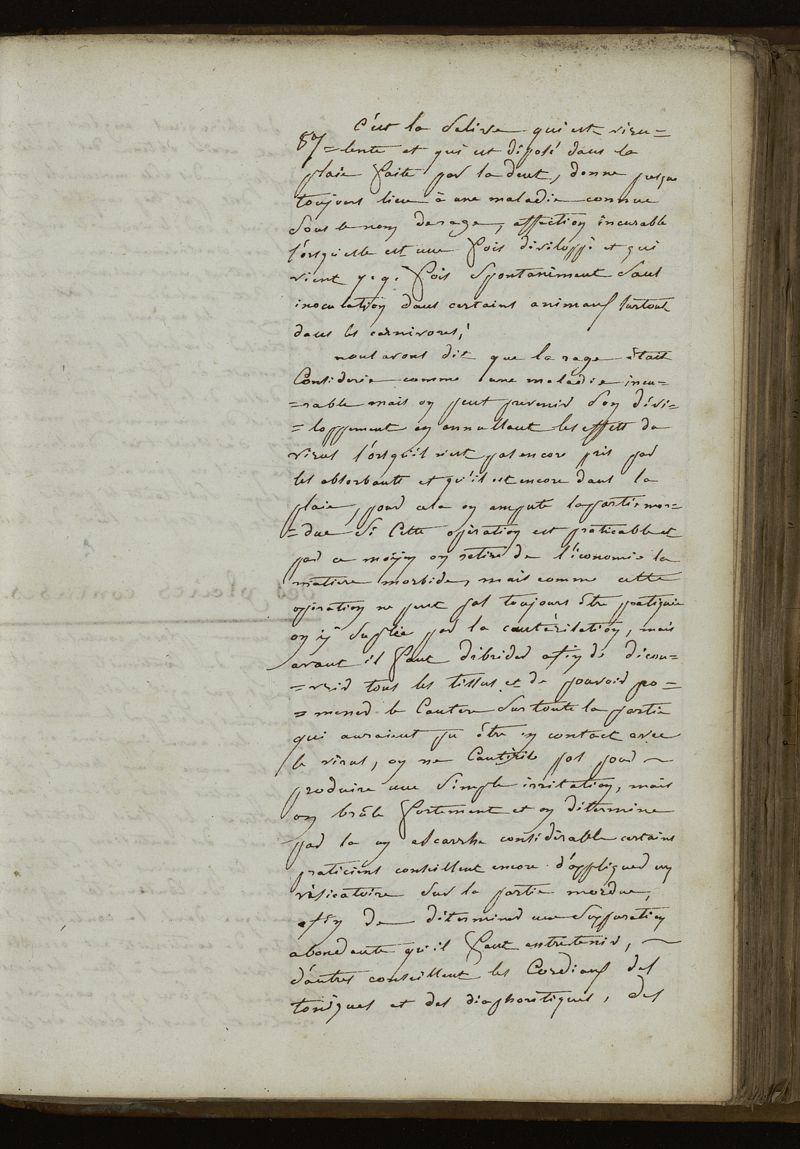 87
C'est la Salive qui est viru=
=lente et qui est déposé dans la
plaie faite par la dent, donne presque
toujours lieu à une maladie connue
Sous le nom de rage, affection incurable
lorsqu'elle est une fois développé et qui
vient q.q. fois Spontanément Sans
inoculation dans certains animaux surtout
dans les carnivores;
nous avons dit que la rage était
Considerée comme une maladie incu=
=rable mais on peut prevenir Son déve=
=loppement en annullant les effets du
virus lorsqu'il n'est pas encore pris par
les absorbants et qu'il est encore dans la
plaie, pour cela on ampute la partie mor=
=due Si Cette opération est praticable et
par ce moyen on retire de l'économie la
matiere morbide, mais comme cette
opération ne peut pas toujours être pratiquée
on y Suplée par la cautérisation, mais
avant il faut débrider afin de décou=
=vrir tous les tissus et de pouvoir pro=
=mener le Cautere Sur toute la partie
qui auraient pu être en contact avec
le virus, on ne Cautérise pas pour
produire une Simple irritation, mais
on brûle fortement et on détermine
par la un escarrhe considérable certains
praticiens conseillent encore d'appliquer un
vésicatoire Sur la partie mordue,
afin de déterminer une Suppuration
abondante qu'il faut entretenir,
d'autres conseillent les Cordiaux des
toniques et des diaphoretiques, des